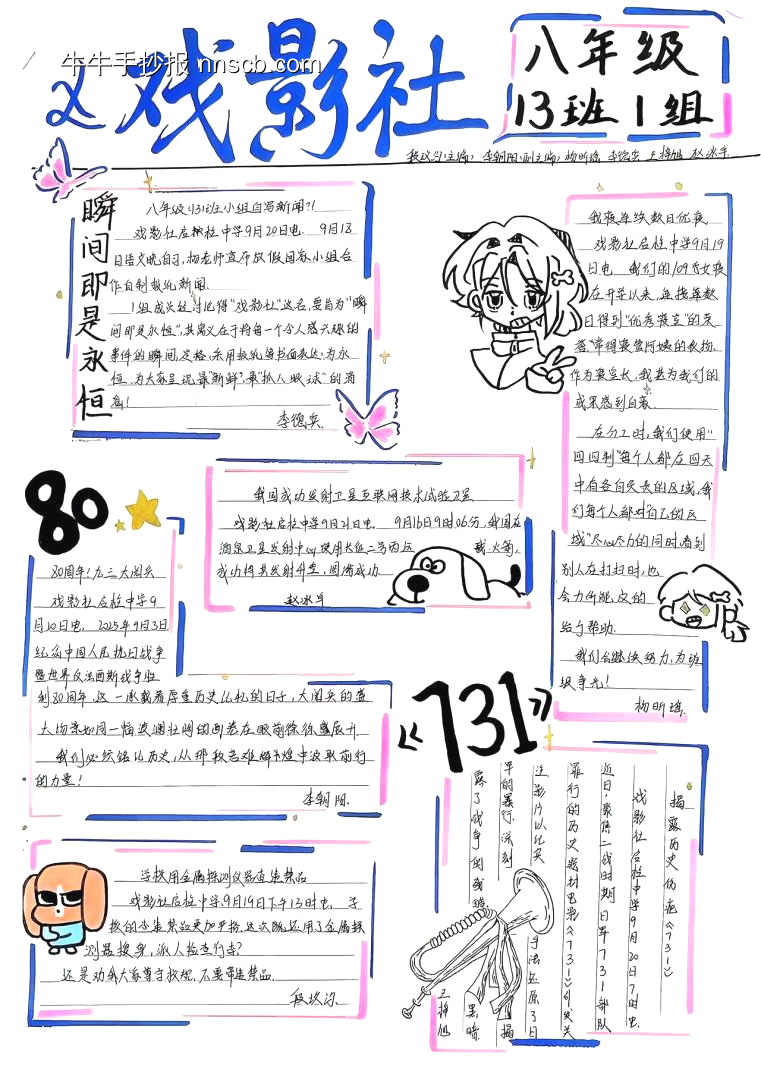 牛牛手抄报 nnscb.com
戏影社
八年级
13班1组
瞬间即是永恒
八年级(13)班小组自写新闻?!
戏影社启检中学9月20日电. 9月18
日语文晚自习,杨老师宣布放假回家小组合
作自制报纸新闻.
1组成员经讨论得“戏影社”这名,要旨为“瞬
间即是永恒”,其寓义在于将每一个令人感兴趣的
事件的瞬间定格,采用报纸等书面表达,为永
恒,为大家呈现最“新鲜”最“抓人眼球”的消
息!
我寝连续数日优寝
戏影社启检中学9月19
日电 我们的109女寝
在开学以来,连接数
日得到“优秀寝室”的荣
誉
作为寝室长,我甚为我们的
成果感到自豪.
在分工时,我们使用“
四四制”每个人都在四天
中有各自负责的区域,我
们每个人都对自己的区
域“尽心尽力的同时,看到
别人在打扫时,也
会力所能及的
给予帮助.
我们会继续努力,为班
级争光!
杨昕
80
我国成功发射卫星互联网技术试验卫星
戏影社启检中学9月21日电. 9月16日9时06分,我国在
酒泉卫星发射中心使用长征二号丙运 载火箭,
成功将其发射升空,圆满成功
赵冰
80周年!九三大阅兵
戏影社启检中学9
月20日电. 2025年9月3日
纪念中国人民抗日战争
暨世界反法西斯战争胜
利80周年.这一承载着厚重历史仪礼的日子,大阅兵的盛
大场景如同一幅波澜壮阔的画卷在眼前徐徐展开.
我们必须铭记历史,从那段苦难辉煌中汲取前行
的力量!
李朝阳.
《731》
揭露历史伤疤《731》
戏影社启检中学9月20日7时电.
近日,聚焦二战时期日军731部队
罪行的历史题材电影《731》引发关
注影片以纪实
手法还原了日
军的暴行,深刻
揭
露了战争的
黑暗.
学校用金属探测仪器查违禁品
戏影社启检中学9月19日下午13时电. 学
校的查违禁品更加严格,这次既运用了金属探
测器搜身,派人检查行李?
还是劝各大家遵守校规,不要带违禁品.